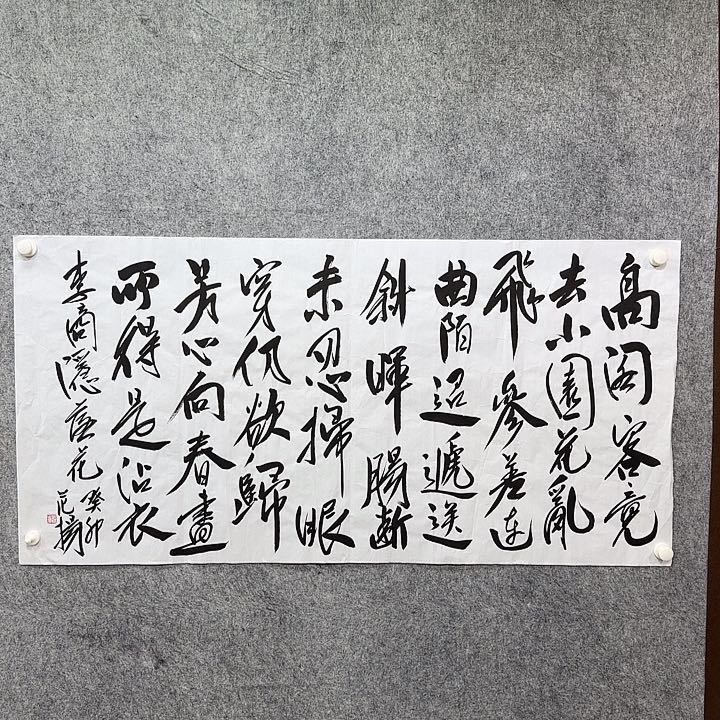 高阁客竟
去小園花亂
飛參差连
曲陌迢遞送
斜暉腸断
未忍掃眼
穿仍欲歸
芳心向春盡
所得是沾衣
李商隱落花
癸卯
范